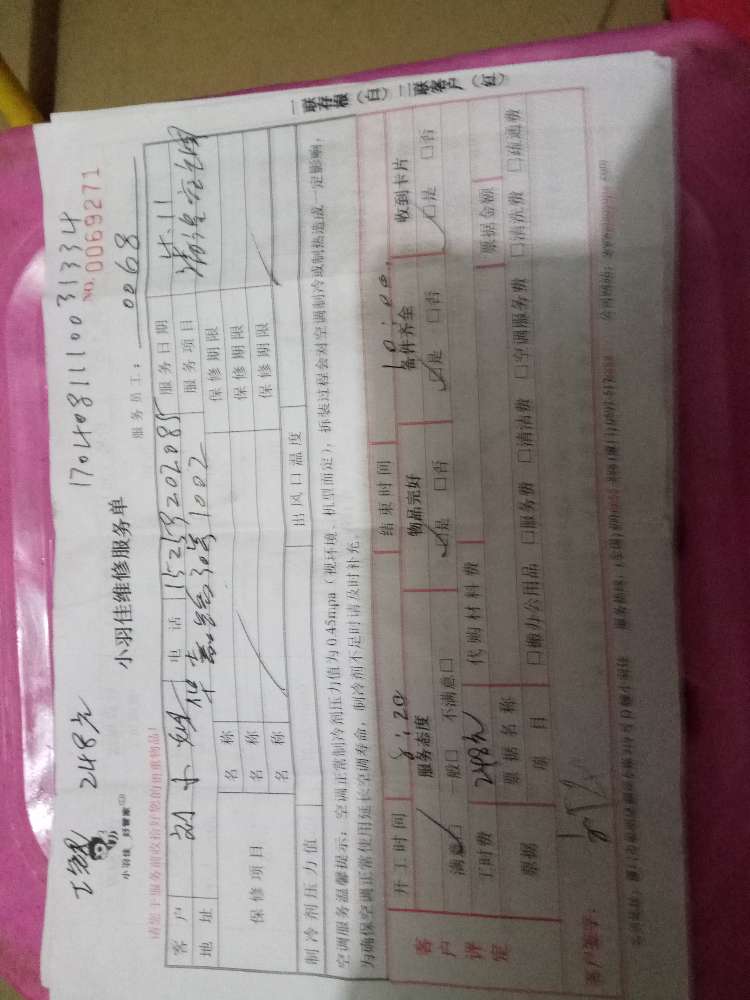 248元 17040811100 31334
小羽佳 好管家
小羽佳维修服务单
NO. 0069271
服务员工： 0068
请您于服务前收拾好您的贵重物品！
客户 电话 15259202085 服务日期 4.11
地址 1002 服务项目
保修项目
名称 保修期限
名称 保修期限
名称 保修期限
制冷剂压力值 出风口温度
空调服务温馨提示：空调正常制冷剂压力值为0.45mpa（视环境、机型而定），拆装过程会对空调制冷或制热造成一定影响，
为确保空调正常使用延长空调寿命，制冷剂不足时请及时补充。
一联存根（白） 二联客户（红）
客户评定
开工时间 8:20 结束时间 10:00
服务态度 物品完好 备件齐全 收到卡片
满意□ 一般□ 不满意□ □是 □否 □是 □否 □是 □否
工时费 248元 代购材料费
票据 票据名称 票据金额
项目 □搬办公用品 □服务费 □清洁费 □空调服务费 □清洗费 □疏通费
客户签字：